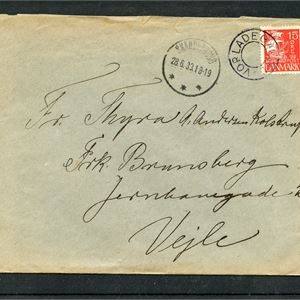 28.6.33.18-19
VORLADE
15
DANMARK
Fr. Thyra A. Andersen Kolstrup
Frk. Brunsberg
Jernbanegade
Vejle